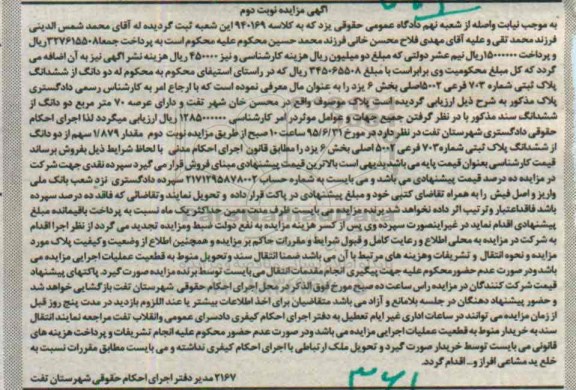 آگهی مزایده نوبت دوم
به موجب نیابت واصله از شعبه نهم دادگاه عمومی حقوقی یزد که به کلاسه ۹۴۰۱۶۹ این شعبه ثبت گردیده له آقای محمد شمس الدینی
فرزند محمد تقی و علیه آقای مهدی فلاح محسن خانی فرزند محمد حسین محکوم علیه محکوم است به پرداخت جمعا ۳۲۷۶۱۵۵۰۸ ریال
و پرداخت ۱۵۰۰۰۰۰۰ ریال نیم عشر دولتی که مبلغ دو میلیون ریال هزینه کارشناسی و نیز ۴۵۰۰۰۰ ریال هزینه نشر آگهی نیز به آن اضافه می
گردد که کل مبلغ محکومیت وی برابراست با مبلغ ۳۴۵۰۶۵۵۰۸ ریال که در راستای استیفای محکوم به محکوم له دو دانگ از ششدانگ
پلاک ثبتی شماره ۷۰۳ فرعی ۵۰۰۲ اصلی بخش ۶ یزد را به عنوان مال معرفی نموده است که با ارجاع امر به کارشناس رسمی دادگستری
پلاک مذکور به شرح ذیل ارزیابی گردیده است پلاک موصوف واقع در محسن خان شهر تفت و دارای عرصه ۷۰ متر مربع دو دانگ از
ششدانگ سند مذکور با در نظر گرفتن جمیع جهات و عوامل موثر در امر کارشناسی ۱۲۸۵۰۰۰۰۰۰ ریال ارزیابی میگردد لذا اجرای احکام
حقوقی دادگستری شهرستان تفت در نظر دارد در مورخ ۹۵/۶/۳۱ ساعت ۱۰ صبح از طریق مزایده نوبت دوم مقدار ۱/۸۷۹ سهم از دو دانگ
از ششدانگ پلاک ثبتی شماره ۷۰۳ فرعی ۵۰۰۲ اصلی بخش ۶ یزد را مطابق قانون اجرای احکام مدنی با لحاظ شرایط ذیل بفروش برساند
قیمت کارشناسی بعنوان قیمت پایه می باشد بدیهی است بالاترین قیمت پیشنهادی مبنای فروش قرار می گیرد سپرده نقدی جهت شرکت
در مزایده ده درصد قیمت پیشنهادی می باشد و می بایست به شماره حساب ۲۱۷۱۲۹۵۸۷۸۰۰۲ سپرده دادگستری نزد شعب بانک ملی
واریز و اصل فیش را به همراه تقاضای کتبی خود و مبلغ پیشنهادی در پاکت قرار داده و تحویل نمایند و تقاضائی که فاقد ده درصد سپرده
باشد فاقد اعتبار و ترتیب اثر داده نخواهد شد برنده مزایده می بایست ظرف مدت حداکثر یک ماه نسبت به پرداخت باقیمانده مبلغ
پیشنهادی اقدام نماید در غیراینصورت سپرده وی پس از کسر هزینه مزایده به نفع دولت ضبط و مزایده تجدید می گردد از نظر اجرا اقدام
به شرکت در مزایده به محلی اطلاع و رعایت کامل و قبول شرایط و مقررات حاکم بر مزایده و همچنین اطلاع از وضعیت و کیفیت پلاک مورد
مزایده و نحوه انتقال و تشریفات و هزینه های مرتبط با آن می باشد ضمنا انتقال سند و تحویل منوط به قطعیت عملیات اجرایی مزایده می
باشد و در صورت عدم حضور محکوم علیه جهت پیگیری انجام مقدمات انتقال می بایست توسط برنده مزایده صورت گیرد. پاکتهای پیشنهاد
قیمت شرکت کنندگان در مزایده راس ساعت ده صبح مورخ فوق الذکر در محل اجرای احکام حقوقی شهرستان تفت بازگشایی خواهد شد
و حضور پیشنهاد دهندگان در جلسه بلامانع و آزاد می باشد متقاضیان برای اخذ اطلاعات بیشتر یا عند اللزوم بازدید در مدت پنج روز قبل
از زمان مزایده می توانند در ساعات اداری غیر ایام تعطیل به دفتر اجرای احکام کیفری دادسرای عمومی وانقلاب تفت مراجعه نمایند انتقال
سند به خریدار منوط به قطعیت عملیات اجرایی مزایده می باشد و در صورت عدم حضور محکوم علیه انجام تشریفات و پرداخت هزینه های
قانونی می بایست توسط خریدار صورت گیرد و تحویل ملک ارتباطی با اجرای احکام کیفری نداشته و می بایست مطابق مقررات نسبت به
خلع ید مشاعی افراز و... اقدام گردد.
۲۱۶۷ مدیر دفتر اجرای احکام حقوقی شهرستان تفت